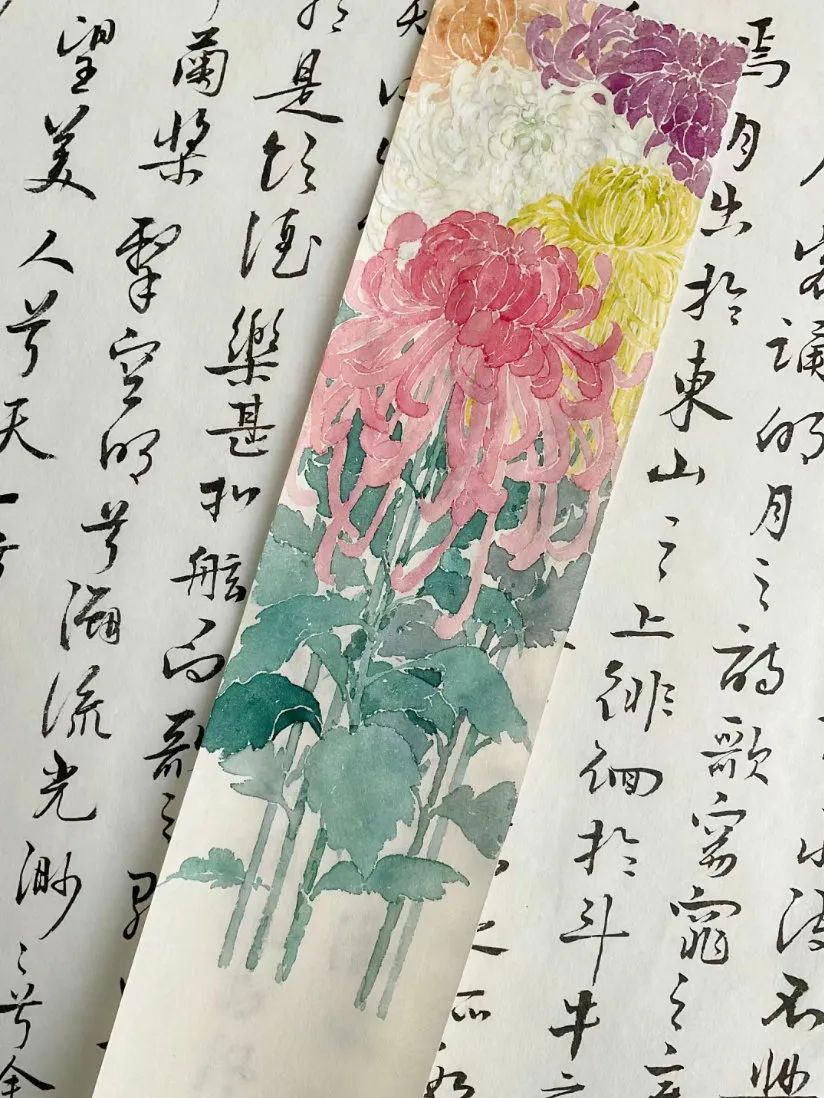 水波不
客誦明月之詩歌窈窕之
焉月出於東山之上徘徊於斗牛之
之所如
於是飲酒樂甚扣舷而歌之歌
蘭槳擊空明兮溯流光渺渺兮余
望美人兮天一